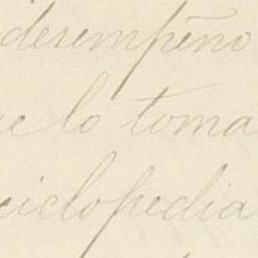 desempeño
e lo toma
ciclopedia